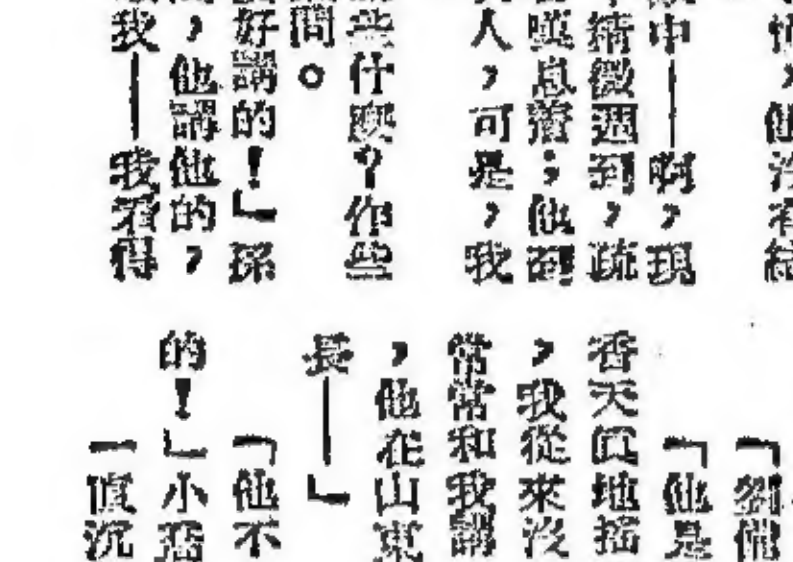 情，他沒有結
中——啊，現
精微週到，疏
嘆息着；他到
人，可是，我
些什麼？作些
問。
好講的！」孫
，他講他的，
我——我看得
「劉佛
「他是
香天真地搖
，我從來沒
常常和我講
，他在山東
長——」
「他不
的！」小
一直沉